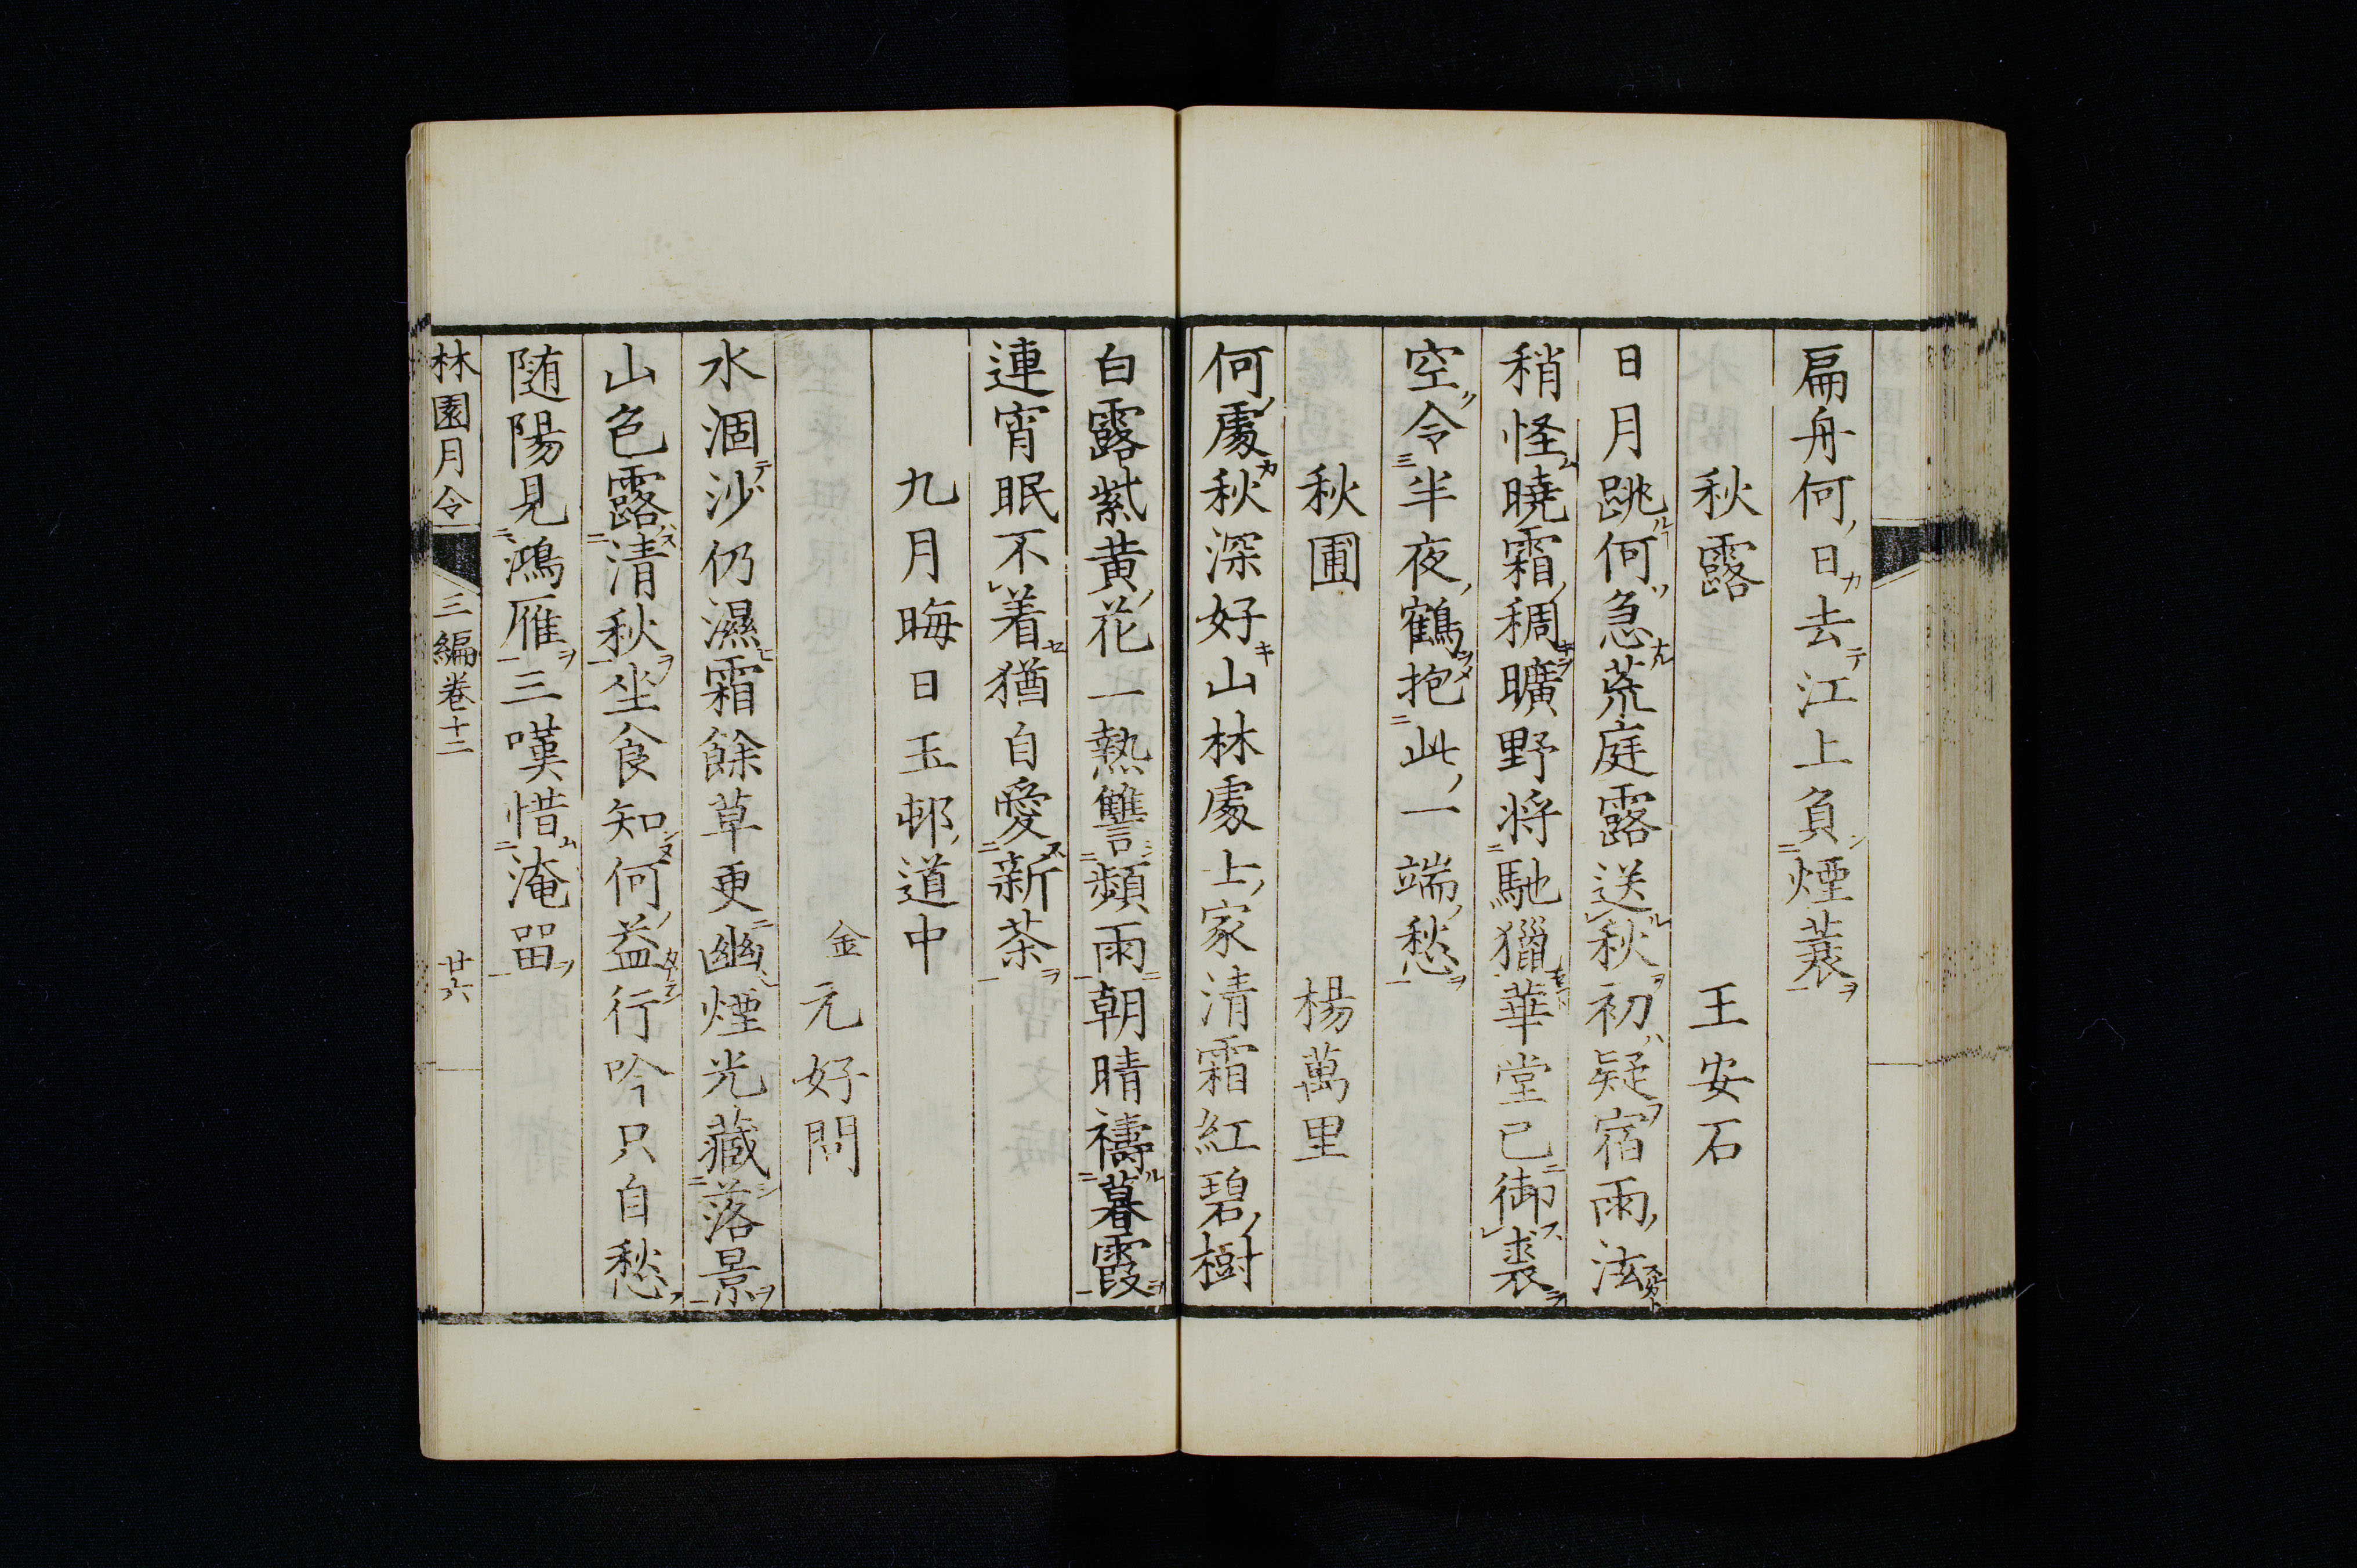 扁舟何日去江上負煙蓑
秋露 王安石
日月跳何急荒庭露送秋初疑宿雨泫
稍怪曉霜稠曠野將馳獵華堂已御裘
空令半夜鶴抱此一端愁
秋圃 楊萬里
何處秋深好山林處士家清霜紅碧樹
白露紫黃花一熱讐頻雨朝晴禱暮霞
連宵眠不着猶自愛新茶
九月晦日玉邨道中
金 元好問
水涸沙仍濕霜餘草更幽煙光藏落景
山色露清秋坐食知何益行吟只自愁
随陽見鴻雁三嘆惜淹畱
林園月令 三編卷十二 廿六